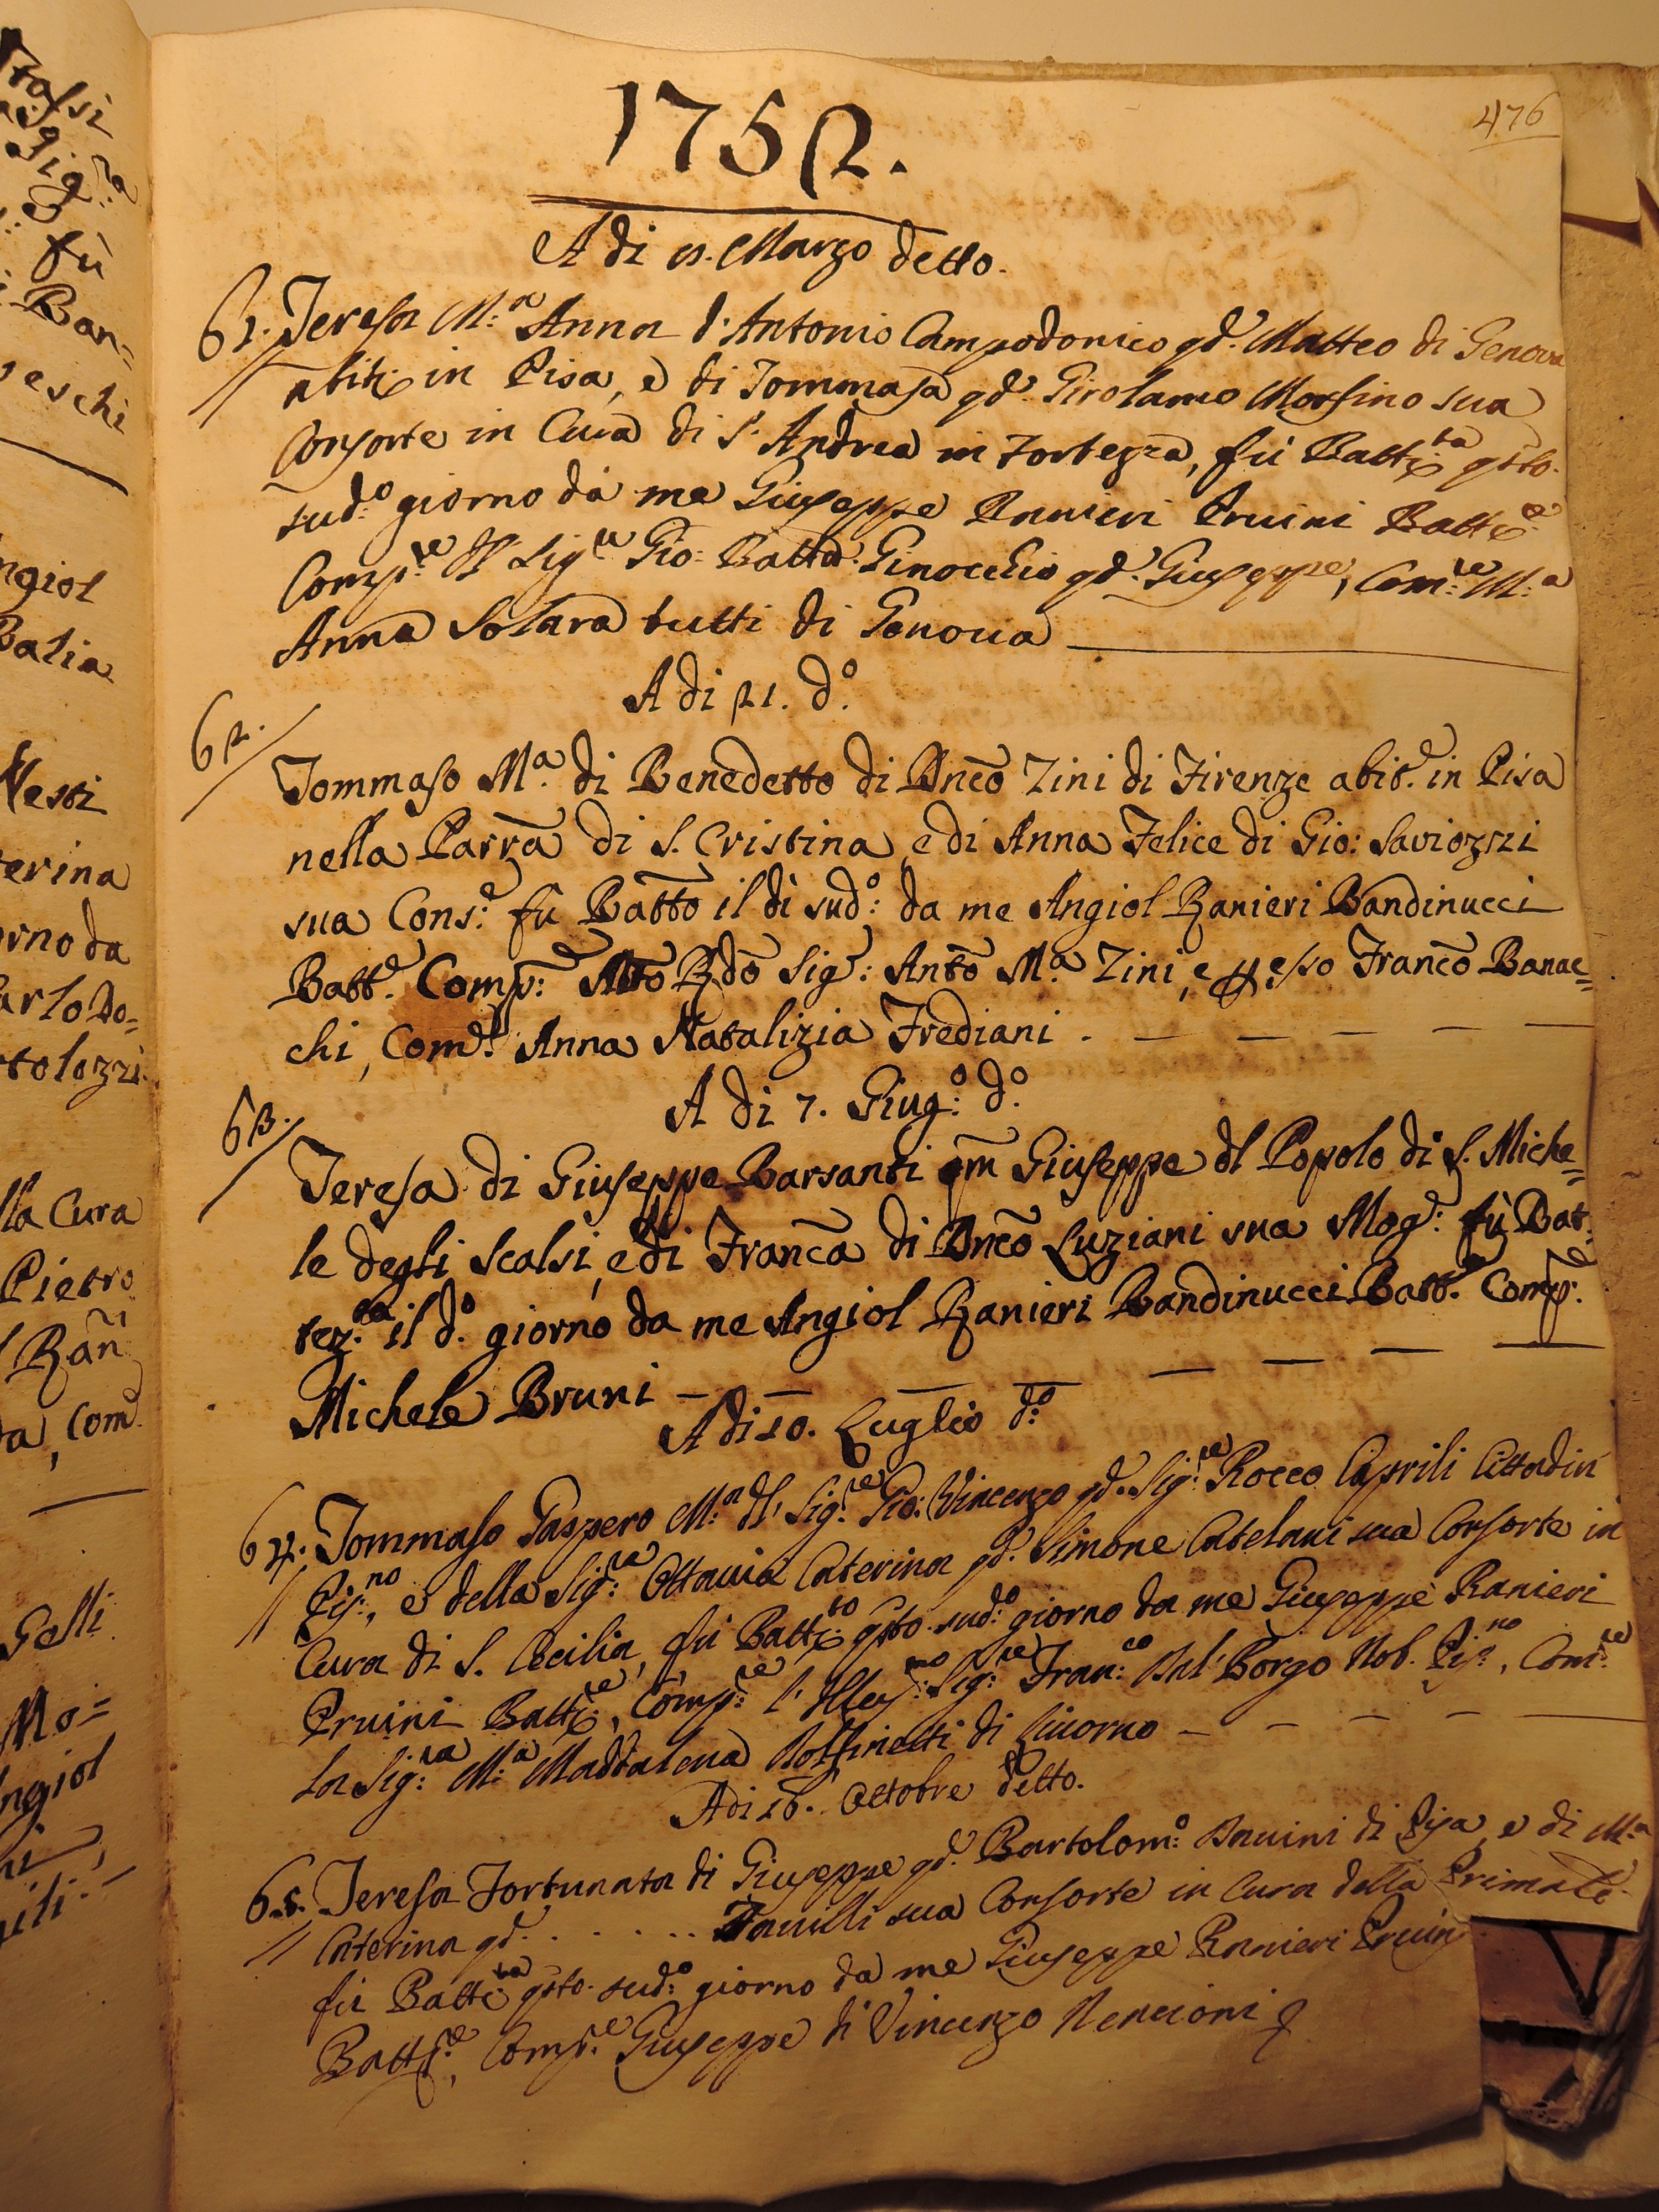 476
1752.
A di 19. Marzo detto.
61. Teresa M:ª Anna d'Antonio Campodonico qd. Matteo di Genova
abit: in Pisa, e di Tommasa qd. Girolamo Morsino sua
Consorte in Cura di S. Andrea in Fortezza, fù Batt:ta qsto.
sud:º giorno da me Giuseppe Ranieri Pruini Batt:re
Comp:re Il Sig:re Gio: Batta Ginocchio qd. Giuseppe, Com:re M:ª
Anna Solara tutti di Genova
A di 21. d:º
62. Tommaso M:ª di Benedetto di Dnco Zini di Firenze abit:e in Pisa
nella Parra di S. Cristina, e di Anna Felice di Gio: Saviozzi
sua Cons:e fù Batto il dì sud:º da me Angiol Ranieri Bandinucci
Batt:e Comp:e Mto Rdo Sig:r Anto M:ª Zini, e p eso Franco Banac=
chi, Com:e Anna Natalizia Frediani .
A di 7. Giug:º d:º
63. Teresa di Giuseppe Barsanti qm Giuseppe dl Popolo di S. Miche=
le degli Scalsi, e di Franca di Dnco Luziani sua Mog:e fù Bat=
tez:ta il d:º giorno da me Angiol Ranieri Bandinucci Batt:e Comp:e
Michele Bruni
A di 10. Luglio d:º
64. Tommaso Gaspero M:ª dl' Sig:re Gio: Vincenzo qd. Sig:re Rocco Caprili Cittadin
Pis:no, e della Sig:ra Ottavia Caterina qd. Simone Catelani sua Consorte in
Cura di S. Cecilia, fù Batt:to qsto. sud:º giorno da me Giuseppe Ranieri
Pruini Batt:re, Comp:re l' Illus:mo Sig:re Fran:co Dal' Borgo Nob. Pis:no, Com:re
la Sig:ra M:ª Maddalena di Livorno
A di 16. Ottobre detto.
65. Teresa Fortunata di Giuseppe qd. Bartolom:º Bavini di Pisa, e di M:ª
Caterina qd. . . . . . . Favilli sua Consorte in Cura della Primale
fù Batt:ta qsto. sud:º giorno da me Giuseppe Ranieri Pruin
Batt:re, Comp:re Giuseppe di Vincenzo Nencioni